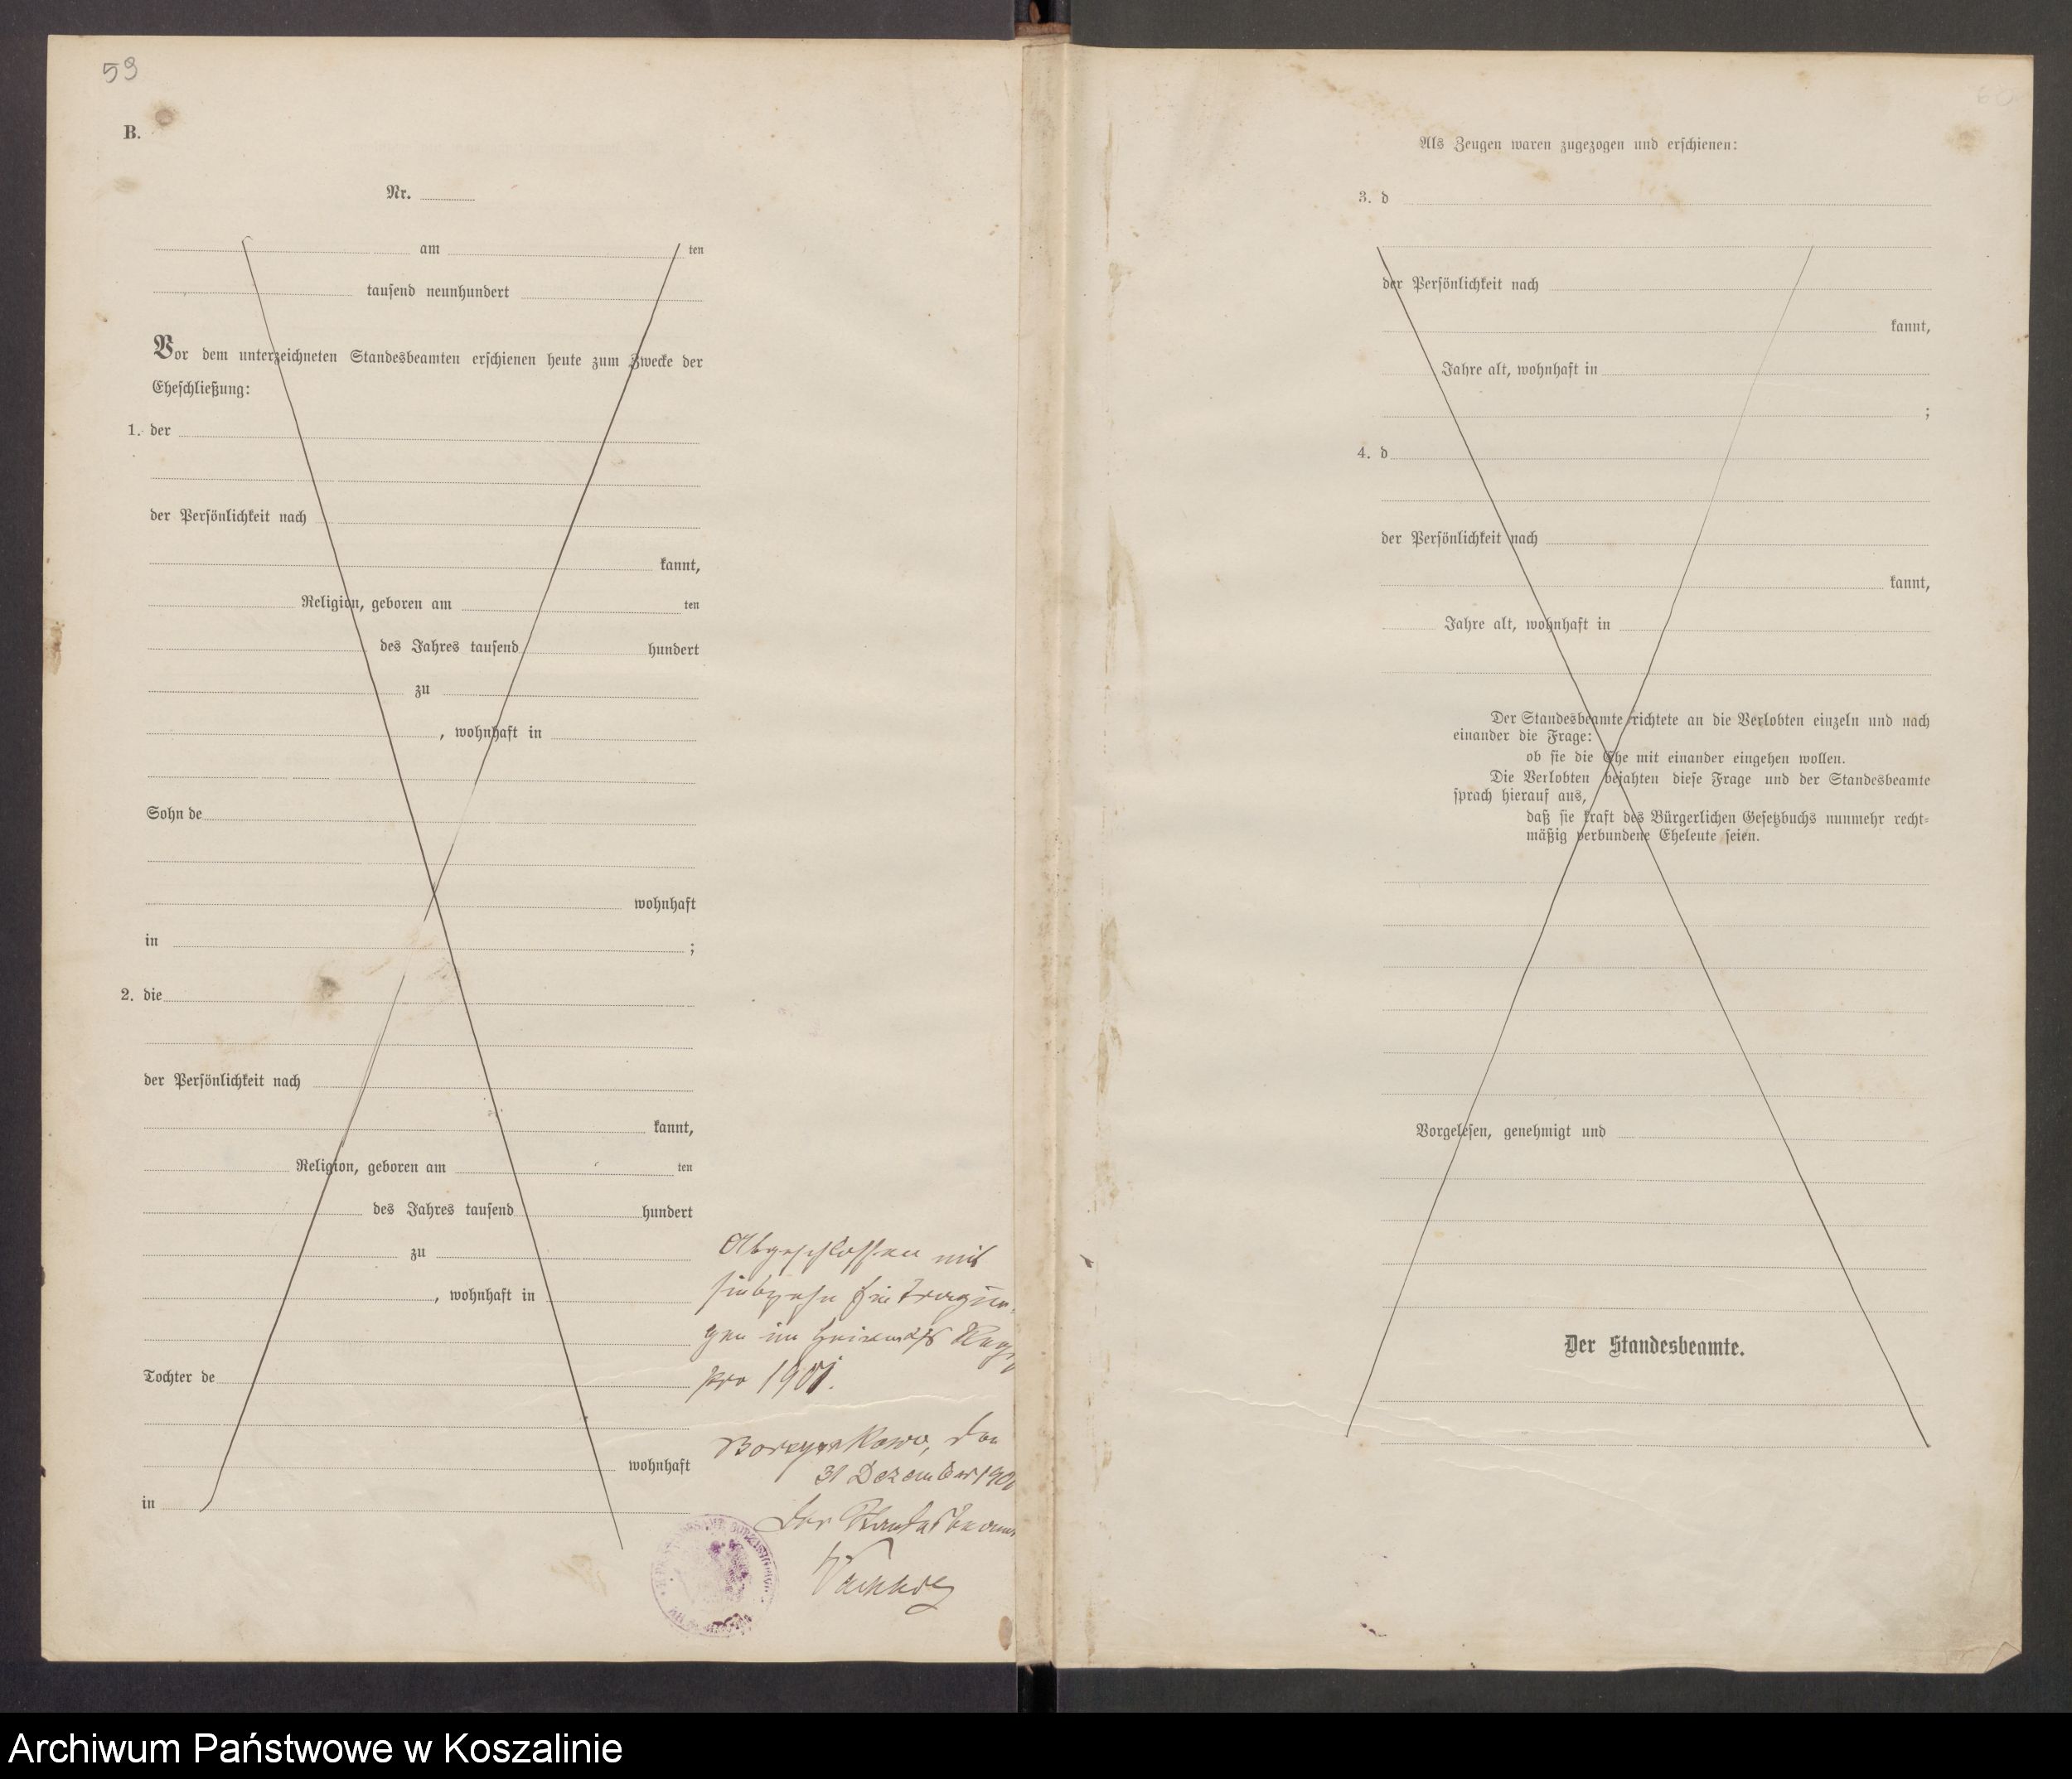 59
B.
Nr.
am ten
tausend neunhundert
Vor dem unterzeichneten Standesbeamten erschienen heute zum Zwecke der
Eheschließung:
1. der
der Persönlichkeit nach
kannt,
Religion, geboren am ten
des Jahres tausend hundert
zu
, wohnhaft in
Sohn de
wohnhaft
in ;
2. die
der Persönlichkeit nach
kannt,
Religion, geboren am ten
des Jahres tausend hundert
zu
, wohnhaft in
Tochter de
wohnhaft
in
Abgeschlossen mit
siebzehn Eintragun-
gen im Heirats
pro 1901.
den
31 Dezember 190
Der Standesbeam
Als Zeugen waren zugezogen und erschienen:
3. d
der Persönlichkeit nach
kannt,
Jahre alt, wohnhaft in
;
4. d
der Persönlichkeit nach
kannt,
Jahre alt, wohnhaft in
Der Standesbeamte richtete an die Verlobten einzeln und nach
einander die Frage:
ob sie die Ehe mit einander eingehen wollen.
Die Verlobten bejahten diese Frage und der Standesbeamte
sprach hierauf aus,
daß sie kraft des Bürgerlichen Gesetzbuchs nunmehr recht-
mäßig verbundene Eheleute seien.
Vorgelesen, genehmigt und
Der Standesbeamte.
Archiwum Państwowe w Koszalinie